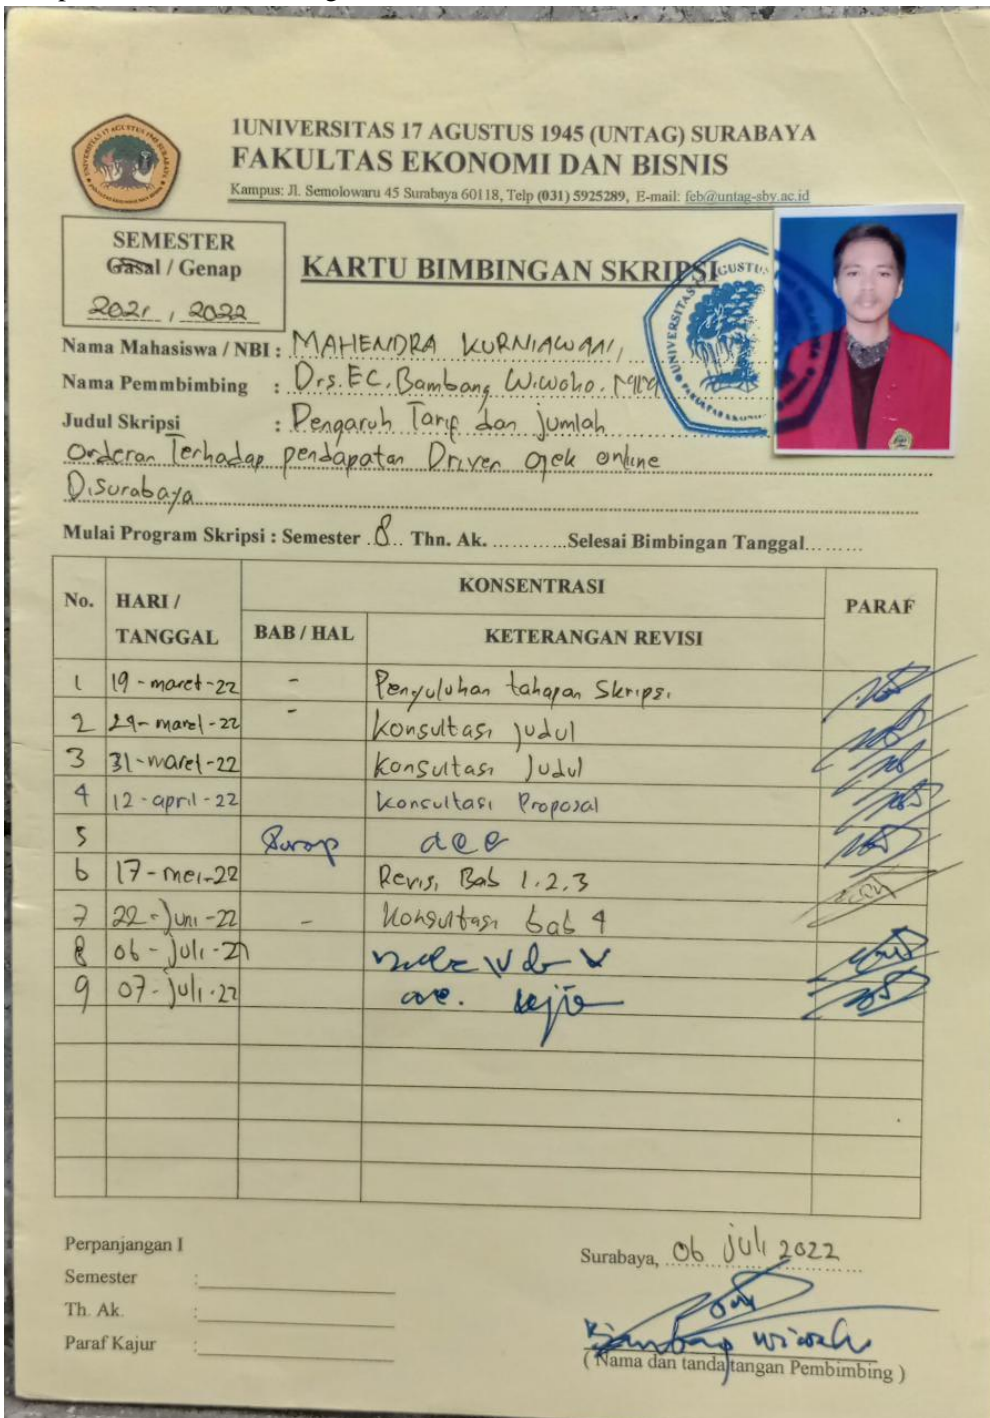 1UNIVERSITAS 17 AGUSTUS 1945 (UNTAG) SURABAYA
FAKULTAS EKONOMI DAN BISNIS
Kampus: Jl. Semolowaru 45 Surabaya 60118, Telp (031) 5925289, E-mail: feb@untag-sby.ac.id
SEMESTER
Gasal / Genap
2021, 2022
KARTU BIMBINGAN SKRIPSI
Nama Mahasiswa / NBI : MAHENDRA KURNIAWAN,
Nama Pemmbimbing : Drs. EC. Bambang Wiwoho.
Judul Skripsi : Pengaruh Tarif dan jumlah
Orderan Terhadap pendapatan Driver Ojek online
Disurabaya
Mulai Program Skripsi : Semester 8 Thn. Ak. ............Selesai Bimbingan Tanggal.........
No. HARI / TANGGAL KONSENTRASI PARAF
BAB / HAL KETERANGAN REVISI
1 19 - maret - 22 - Penyuluhan tahapan Skripsi
2 29 - maret - 22 - Konsultasi judul
3 31 - maret - 22 Konsultasi Judul
4 12 - april - 22 Konsultasi Proposal
5 acc
6 17 - mei - 22 Revisi Bab 1.2.3
7 22 - Juni - 22 - Konsultasi bab 4
8 06 - Juli - 22
9 07 - Juli - 22
Perpanjangan I
Semester :
Th. Ak. :
Paraf Kajur :
Surabaya, 06 juli 2022
Bambang Wiwoho
( Nama dan tanda tangan Pembimbing )